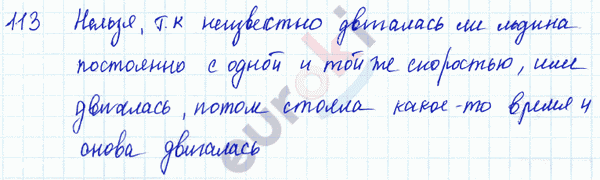 113 Нельзя, т.к неизвестно двигалась ли льдина
постоянно с одной и той же скоростью, или
двигалась, потом стояла какое-то время и
снова двигалась
euroki